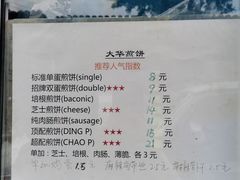 大华煎饼
推荐人气指数
标准单蛋煎饼(single) 8 元
招牌双蛋煎饼(double) ★★★ 9 元
培根煎饼(baconic) 11 元
芝士煎饼(cheese) ★★★ 14 元
纯肉肠煎饼(sausage) 11 元
顶配煎饼(DING P) ★★★ 18 元
超配煎饼(CHAO P) ★★★ 21 元
单加：芝士、培根、肉肠、薄脆、各 3 元